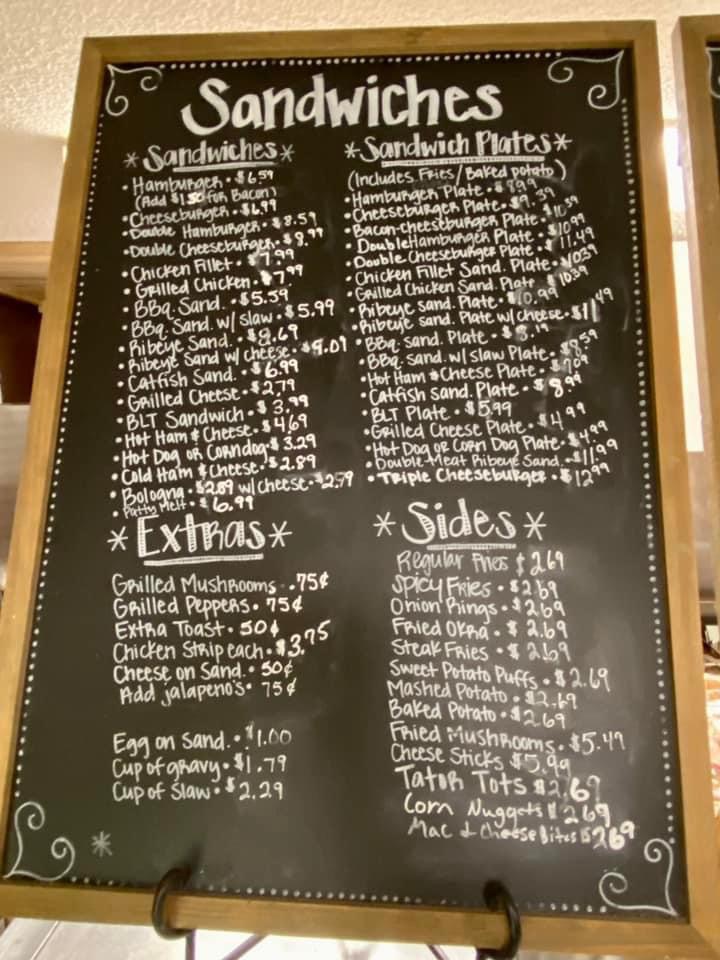 Sandwiches
*Sandwiches*
• Hamburger • $6.59
(Add $1.50 for Bacon)
• Cheeseburger • $6.99
• Double Hamburger • $8.59
• Double Cheeseburger • $8.99
• Chicken Fillet • $7.99
• Grilled Chicken • $7.99
• BBq. Sand. • $5.59
• BBq. Sand. w/ slaw • $5.99
• Ribeye Sand. • $8.69
• Ribeye Sand w/ cheese • $9.09
• Catfish Sand. • $6.99
• Grilled Cheese • $2.79
• BLT Sandwich • $3.99
• Hot Ham & Cheese • $4.69
• Hot Dog or Corndog • $3.29
• Cold Ham & Cheese • $2.89
• Bologna • $2.89 w/ cheese • $2.99
• Patty Melt • $6.99
*Sandwich Plates*
(Includes Fries/Baked potato)
• Hamburger Plate • $8.99
• Cheeseburger Plate • $9.39
• Bacon-cheeseburger Plate • $10.39
• Double Hamburger Plate • $10.99
• Double Cheeseburger Plate • $11.49
• Chicken Fillet Sand. Plate • $10.39
• Grilled Chicken Sand. Plate • $10.39
• Ribeye sand. Plate • $10.99
• Ribeye sand. Plate w/ cheese • $11.49
• BBq. sand. Plate • $8.19
• BBq. sand. w/ slaw Plate • $8.59
• Hot Ham & Cheese Plate • $7.09
• Catfish sand. Plate • $8.99
• BLT Plate • $5.99
• Grilled Cheese Plate • $4.99
• Hot Dog or Corn Dog Plate • $4.99
• Double Meat Ribeye Sand. • $11.99
• Triple Cheeseburger • $12.99
*Extras*
Grilled Mushrooms • .75¢
Grilled Peppers • 75¢
Extra Toast • 50¢
Chicken Strip each • $3.75
Cheese on Sand. • 50¢
Add jalapeno's • 75¢
Egg on Sand. • $1.00
Cup of gravy • $1.79
Cup of Slaw • $2.29
*Sides*
Regular Fries $2.69
Spicy Fries • $2.69
Onion Rings • $2.69
Fried Okra • $2.69
Steak Fries • $2.69
Sweet Potato Puffs • $2.69
Mashed Potato • $2.69
Baked Potato • $2.69
Fried Mushrooms • $5.49
Cheese Sticks $5.99
Tator Tots $2.69
Corn Nuggets $2.69
Mac & Cheese Bites $2.69